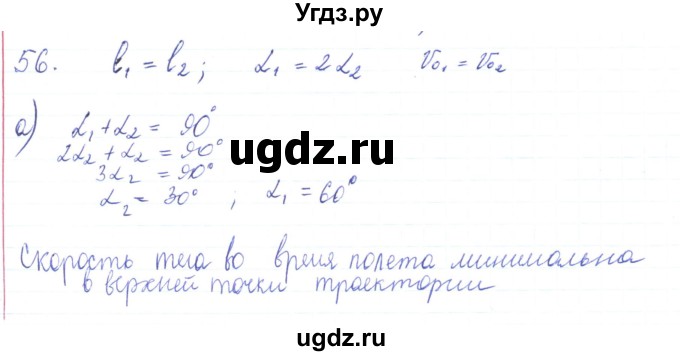 Угдз.ру
56. l₁ = l₂; α₁ = 2α₂ v₀₁ = v₀₂
а) α₁ + α₂ = 90°
2α₂ + α₂ = 90°
3α₂ = 90°
α₂ = 30°; α₁ = 60°
ugdz.ru
Скорость тела во время полета минимальна
в верхней точки траектории
ugdz.ru